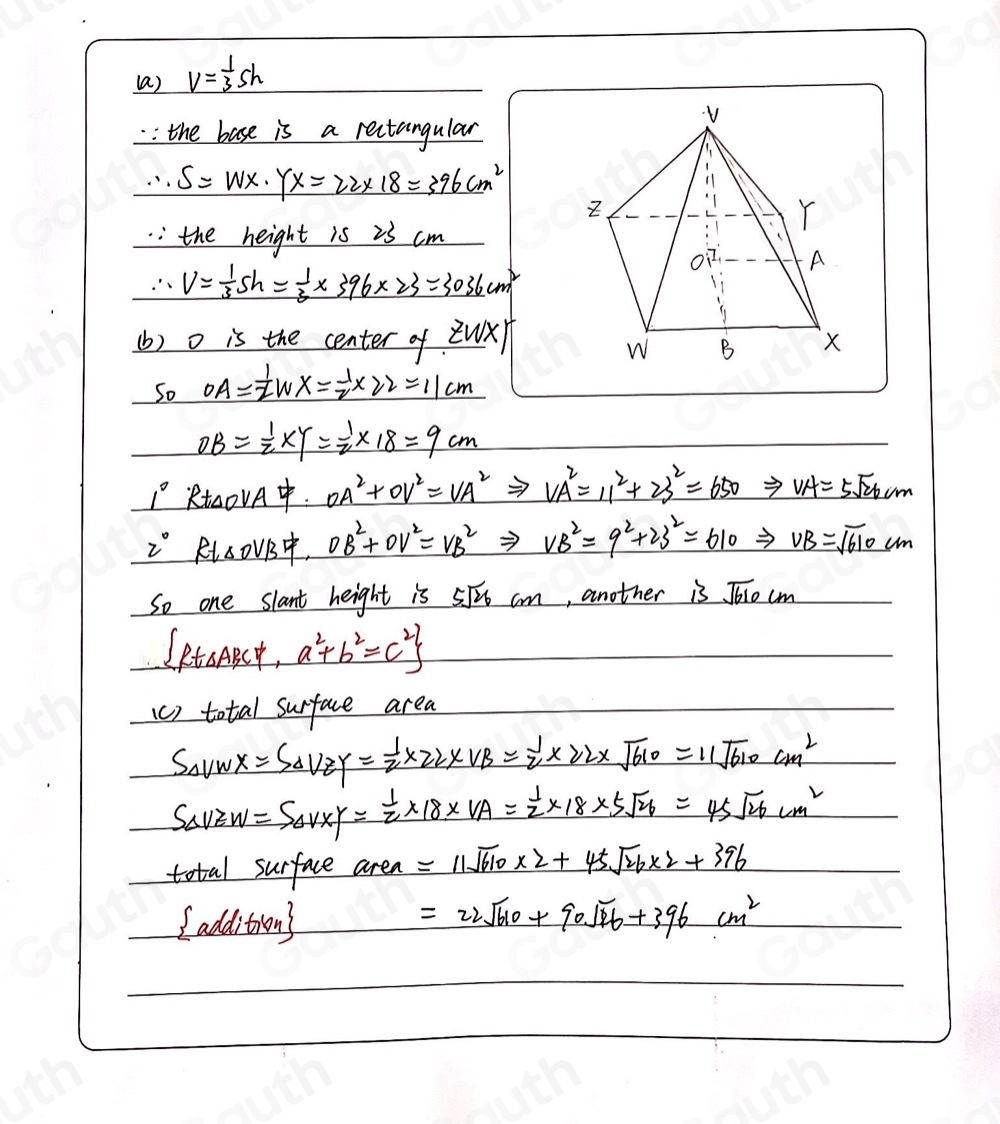 (a) V=⅓Sh
∵ the base is a rectangular
∴ S = WX · YX = 22 × 18 = 396 cm²
∵ the height is 23 cm
∴ V = ⅓Sh = ⅓ × 396 × 23 = 3036 cm²
(b) O is the center of ZWXY
So OA = ½WX = ½ × 22 = 11 cm
OB = ½XY = ½ × 18 = 9 cm
1° Rt△OVA中. OA² + OV² = VA² ⇒ VA² = 11² + 23² = 650 ⇒ VA = 5√26 cm
2° Rt△OVB中, OB² + OV² = VB² ⇒ VB² = 9² + 23² = 610 ⇒ VB = √610 cm
So one slant height is 5√26 cm, another is √610 cm
{Rt△ABC中, a² + b² = c²}
(C) total surface area
S△VWX = S△VZY = ½ × 22 × VB = ½ × 22 × √610 = 11√610 cm²
S△VZW = S△VXY = ½ × 18 × VA = ½ × 18 × 5√26 = 45√26 cm²
total surface area = 11√610 × 2 + 45√26 × 2 + 396
{addition} = 22√610 + 90√26 + 396 cm²
V
Z
Y
O
A
W
B
X
Gauth